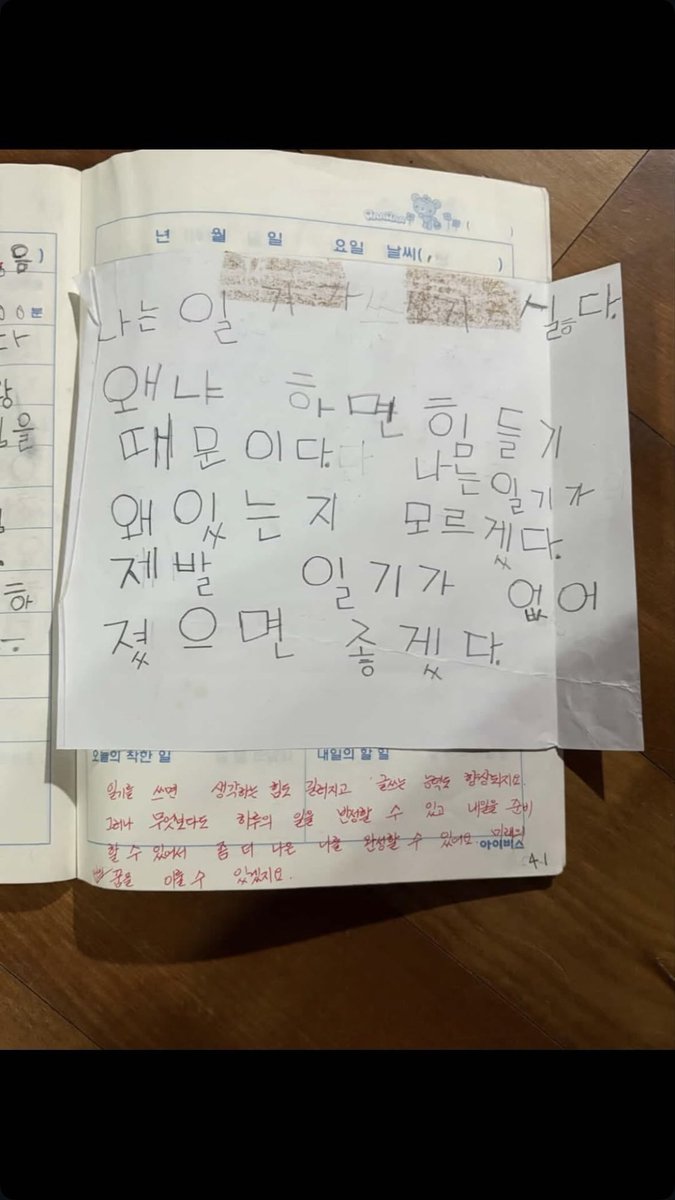 년 월 일 요일 날씨( , )
음)
00분
다
을
하
나는 일기가 쓰기 싫다.
왜냐 하면 힘들기
때문이다. 나는일기가
왜 있는지 모르겠다.
제발 일기가 없어
졌으면 좋겠다.
오늘의 착한 일 내일의 할 일
일기를 쓰면 생각하는 힘도 길러지고 글쓰는 능력도 향상되지요.
그러나 무엇보다도 하루의 일을 반성할 수 있고 내일을 준비
할 수 있어서 좀 더 나은 나를 완성할 수 있어요. 미래의
꿈을 이룰 수 있겠지요.
아이비스
4.1